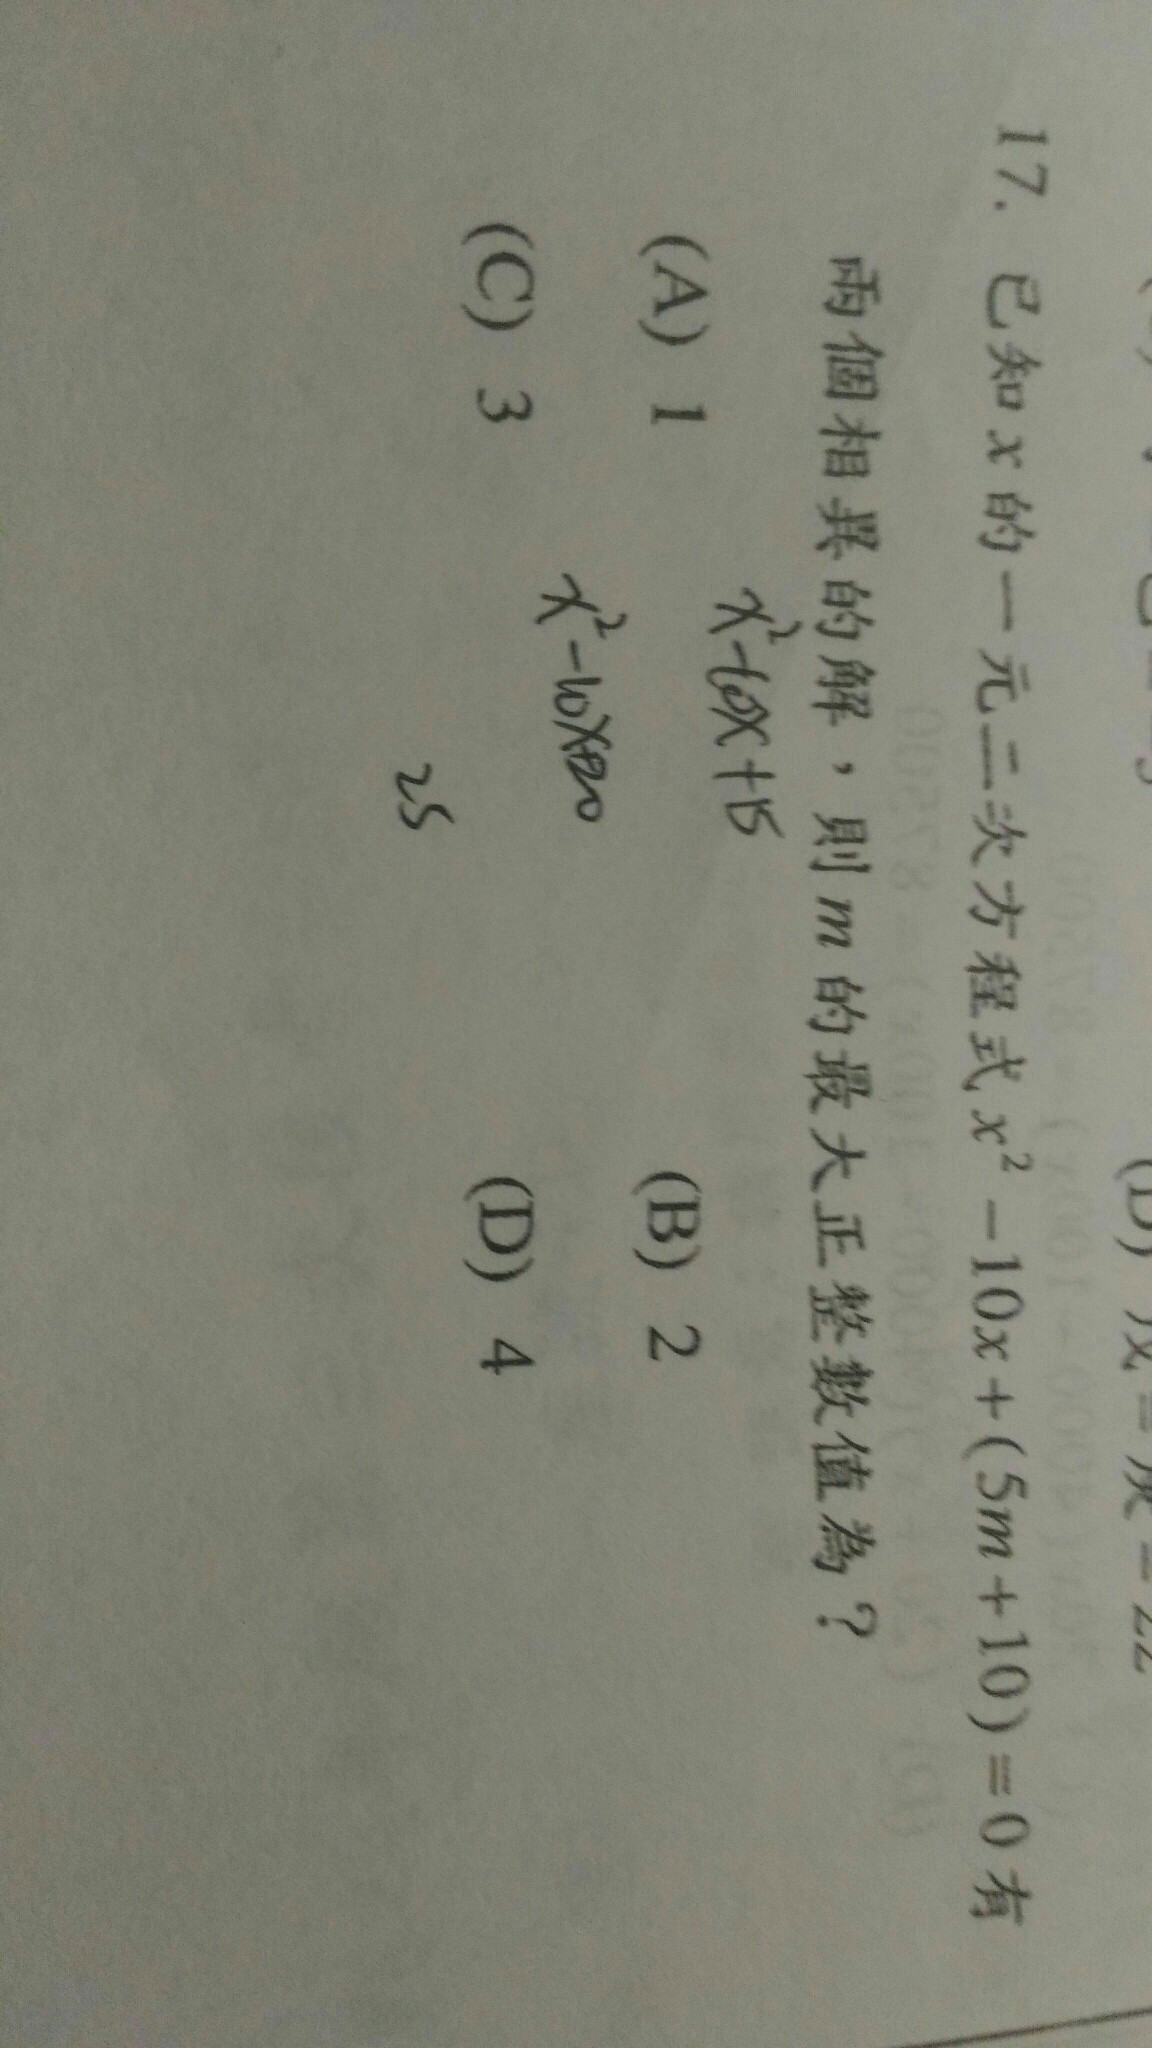 17. 已知x的一元二次方程式x²－10x＋(5m＋10)＝0有
兩個相異的解，則m的最大正整數值為？
(A) 1
(B) 2
(C) 3
(D) 4
x²-10x+15
x²-10x+20
25